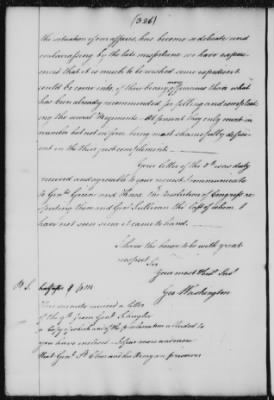 (326)
the situation of our affairs, has become so delicate and
embarrassing by the late misfortunes we have experi-
enced that it is much to be wished some expedients
could be come into, of this bearing more efficacious than what
has been already recommended for filling and compleating
the several Regiments. At present they only exist in
number but not in force being most shamefully defici-
ent in the their just compliment
Your letter of the 5th was duly
received and agreeable to your request I communicated
to Genls Green and Knox the resolution of Congress re-
specting them and Genl Sullivan the last of whom I
have not seen since it came to hand.
I have the honor to be with great
respect Sir
Your most Obed Servt
Geo Washington
P.S. half after 9 PM
This minute received a letter
of the 9th from Genl Schuyler
a copy of which and of the proclamation alluded to
you have inclosed. I fear now no more
that Genl St Clair and his Army are prisoners